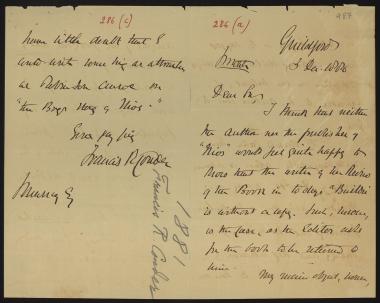 286 (a)
987
Guildford
3 Dec. 1881
Private
Dear Sir,
I think that neither
the author nor the publisher of
"Nios" would feel quite happy to
know that the writer of the Review
of the Book in to day's "Builder"
is without a copy. Such, however,
is the case, as the Editor asks
for the book to be returned to
him.
My main object, however,
286 (c)
have little doubt that I
could write something as attractive
as Robinson Crusoe on
"the Boys
Yours very truly
Francis R Conder
Murray Esq
1881
Francis R Conder